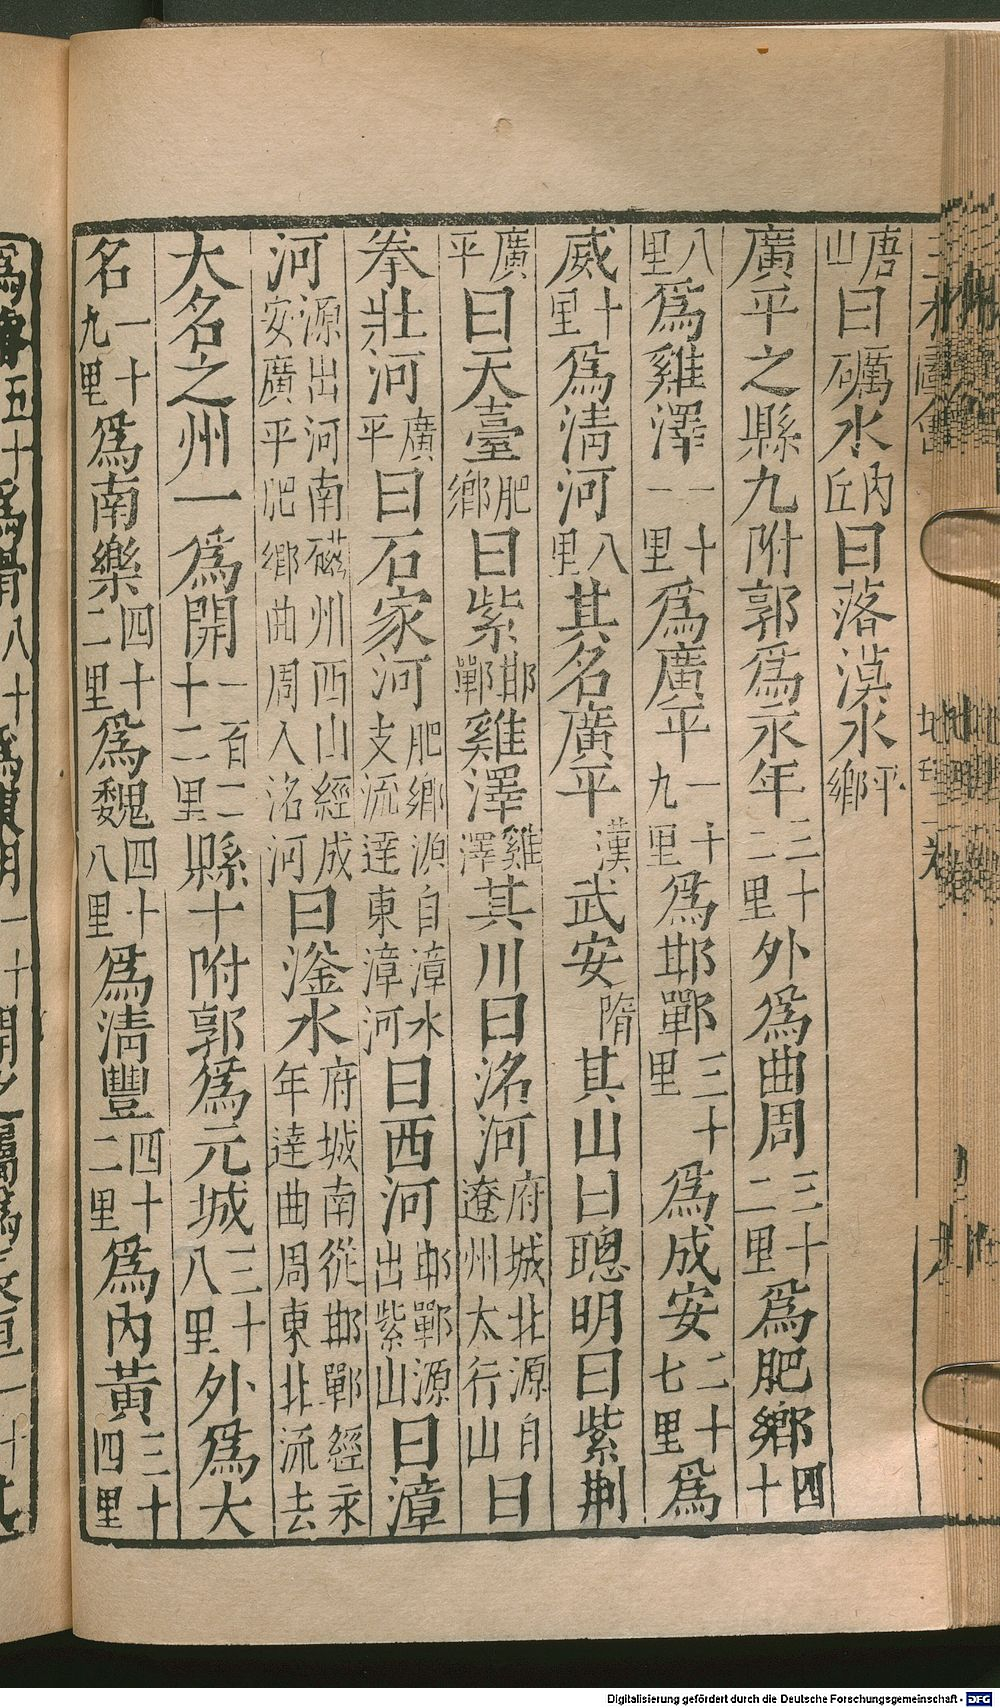 唐山曰礪水內丘曰落漠水平鄉
廣平之縣九附郭為永年三十二里外為曲周三十二里為肥鄉四十
八里為雞澤一十一里為廣平一十九里為邯鄲三十里為成安二十七里為
威十里為清河八里其名廣平漢武安隋其山曰聰明曰紫荆
廣平曰天臺肥鄉曰紫邯鄲雞澤雞澤其川曰洺河府城北源自遼州太行山曰
拳壯河廣平曰石家河肥鄉源自漳水支流達東漳河曰西河邯鄲源出紫山曰漳
河源出河南磁州西山經成安廣平肥鄉曲周入洺河曰滏水府城南從邯鄲經永年達曲周東北流去
大名之州一為開一百二十二里縣十附郭為元城三十八里外為大
名一十九里為南樂四十二里為魏四十八里為清豐四十二里為內黃三十四里
Digitalisierung gefördert durch die Deutsche Forschungsgemeinschaft - DFG